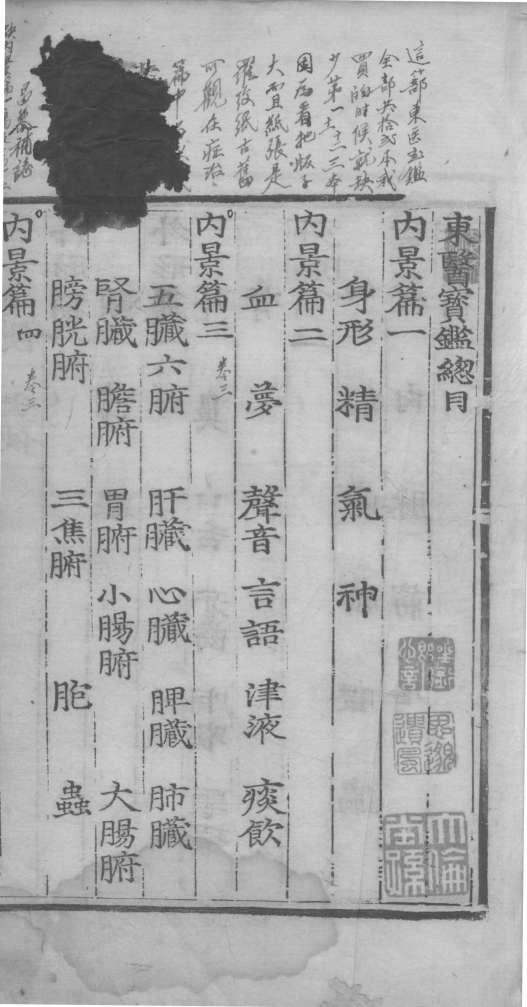 這部東医宝鑑
全部共拾弍本我
買的时候就缺
少第一十二三本
因为看把版子
大而且紙張是
罐紋紙古舊
可觀在症治
篇中
東醫寶鑑總目
內景篇一
身形 精 氣 神
內景篇二
血 夢 聲音 言語 津液 痰飲
內景篇三 卷三
五臟六腑 肝臟 心臟 脾臟 肺臟
腎臟 膽腑 胃腑 小腸腑 大腸腑
膀胱腑 三焦腑 胞 蟲
內景篇四 卷三